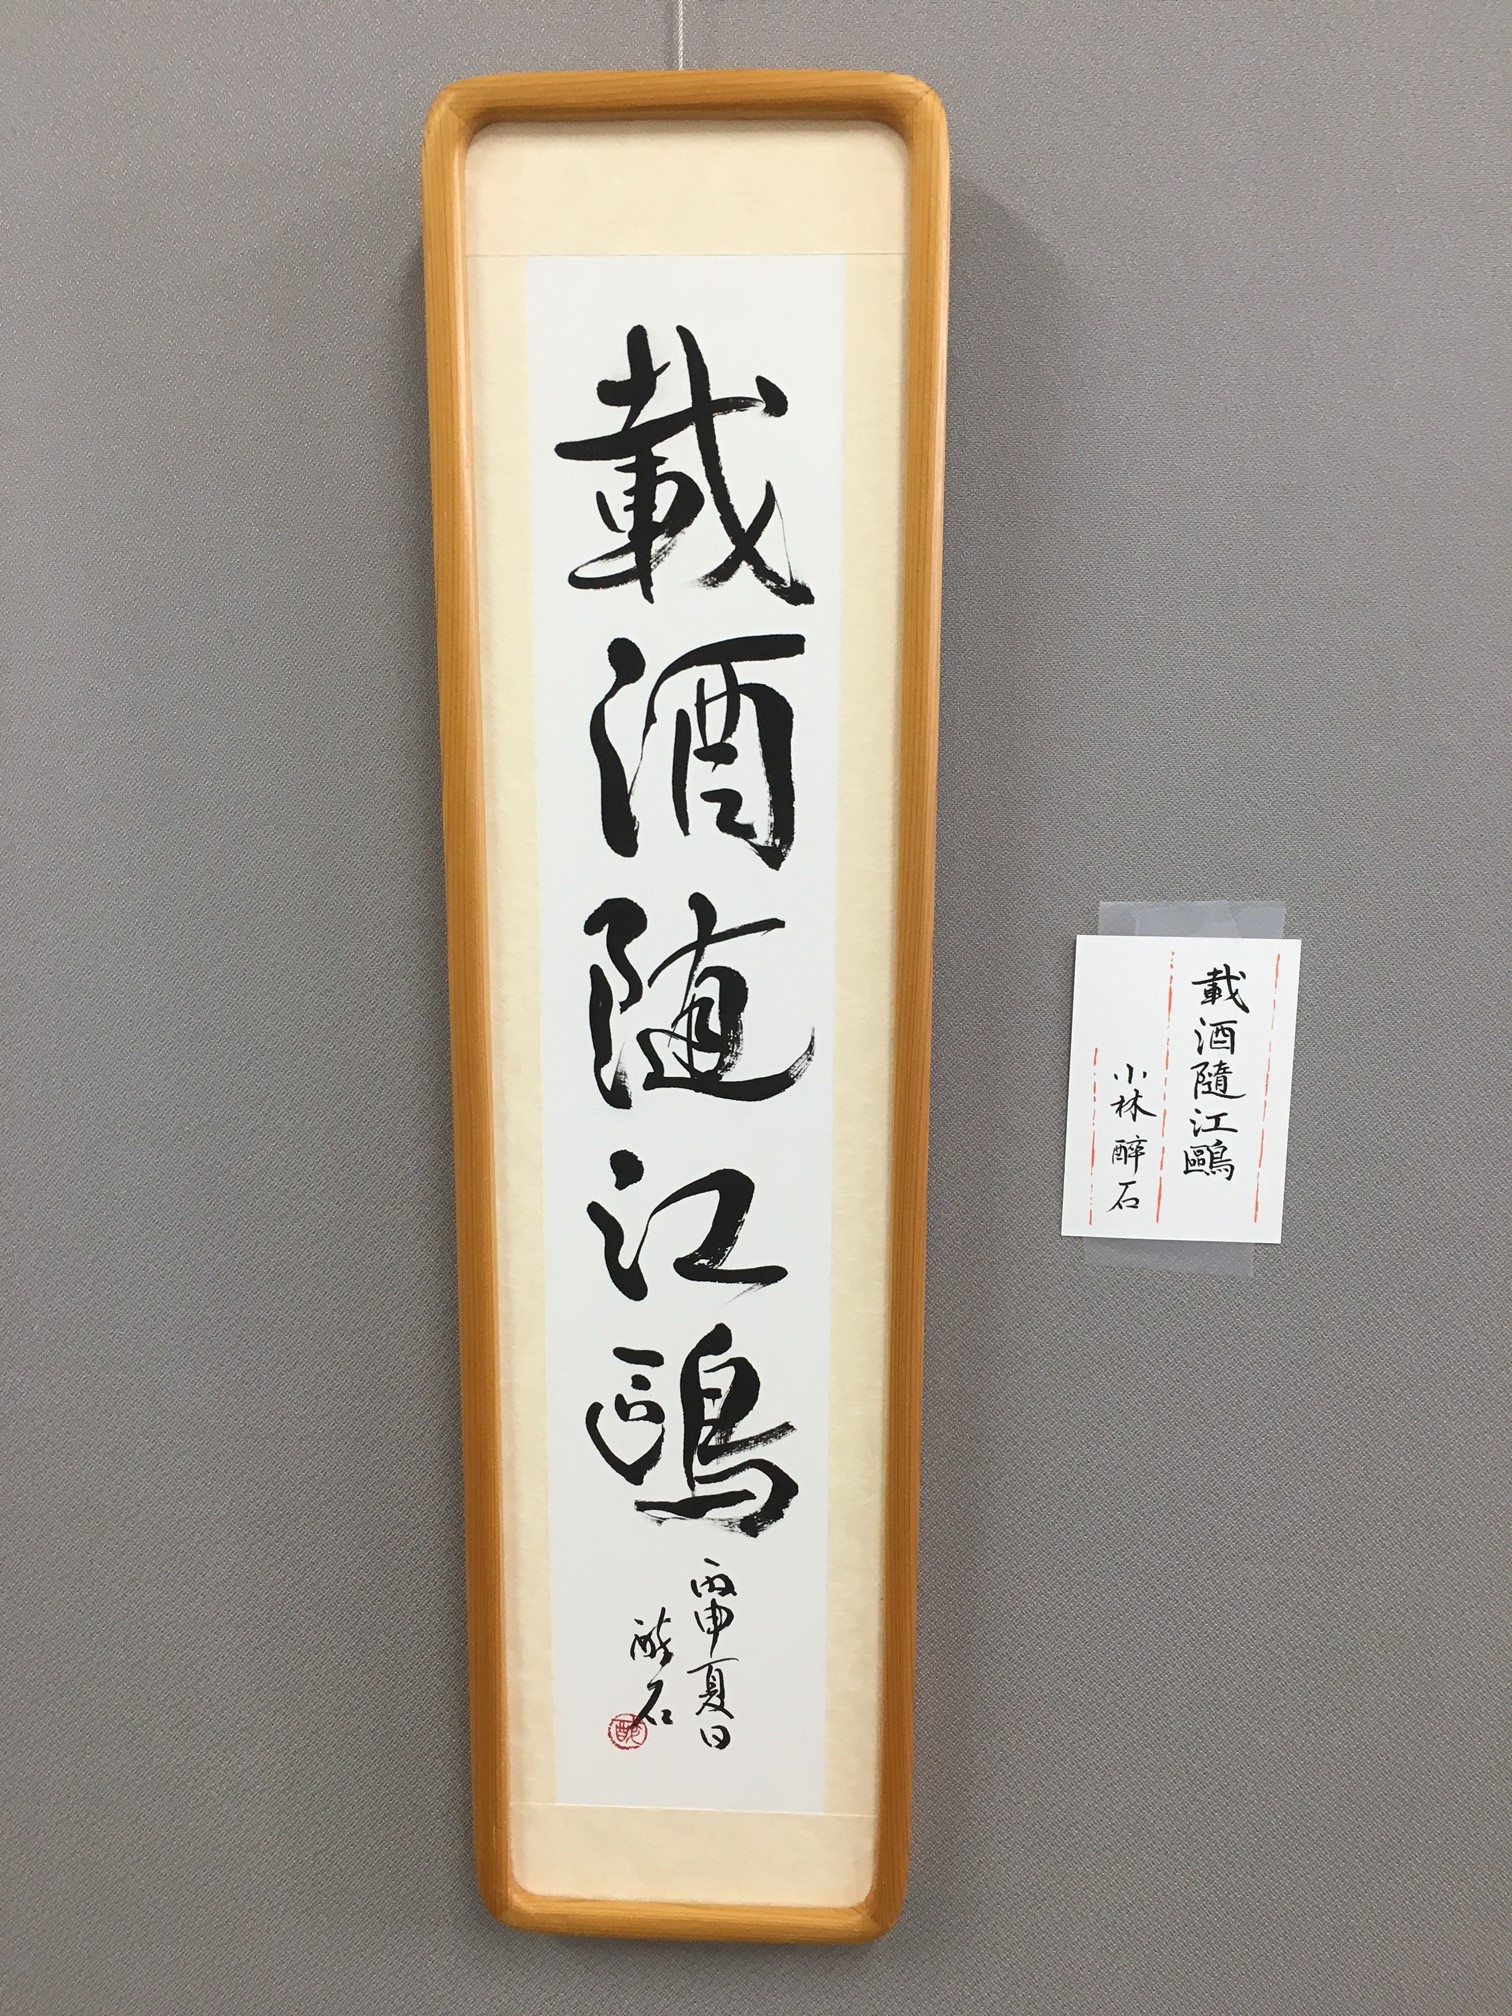 載酒随江鷗
丙申夏日
酔石
載酒隨江鷗
小林酔石